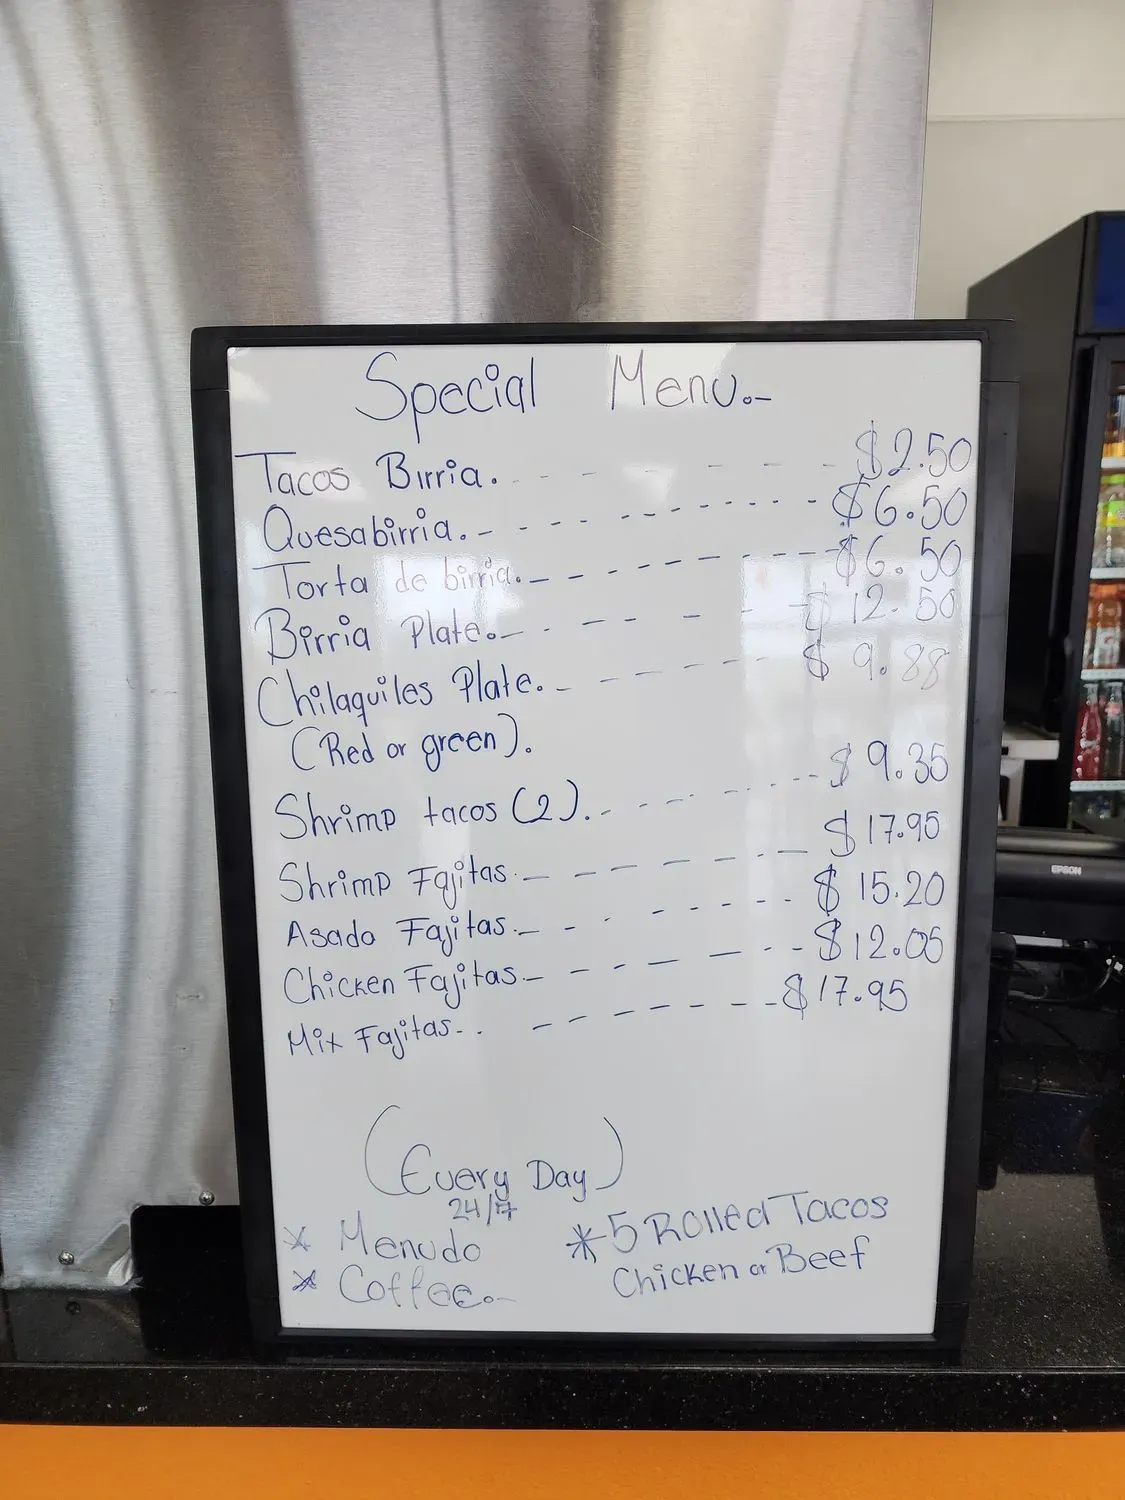 Special Menu.-
Tacos Birria. - - - - - - $2.50
Quesabirria. - - - - - - - - - - - $6.50
Torta de birria. - - - - - - - - - - $6.50
Birria Plate. - - - - - - - $12.50
Chilaquiles Plate. - - - - - - - - $9.88
(Red or green).
Shrimp tacos (2). - - - - - - - - $9.35
Shrimp Fajitas. - - - - - - - - $17.95
Asada Fajitas. - - - - - - - - - $15.20
Chicken Fajitas - - - - - - - - - $12.05
Mix Fajitas. - - - - - - - - - $17.95
(Every Day)
24/7
* Menudo
* Coffee.-
* 5 Rolled Tacos
Chicken or Beef
EPSON